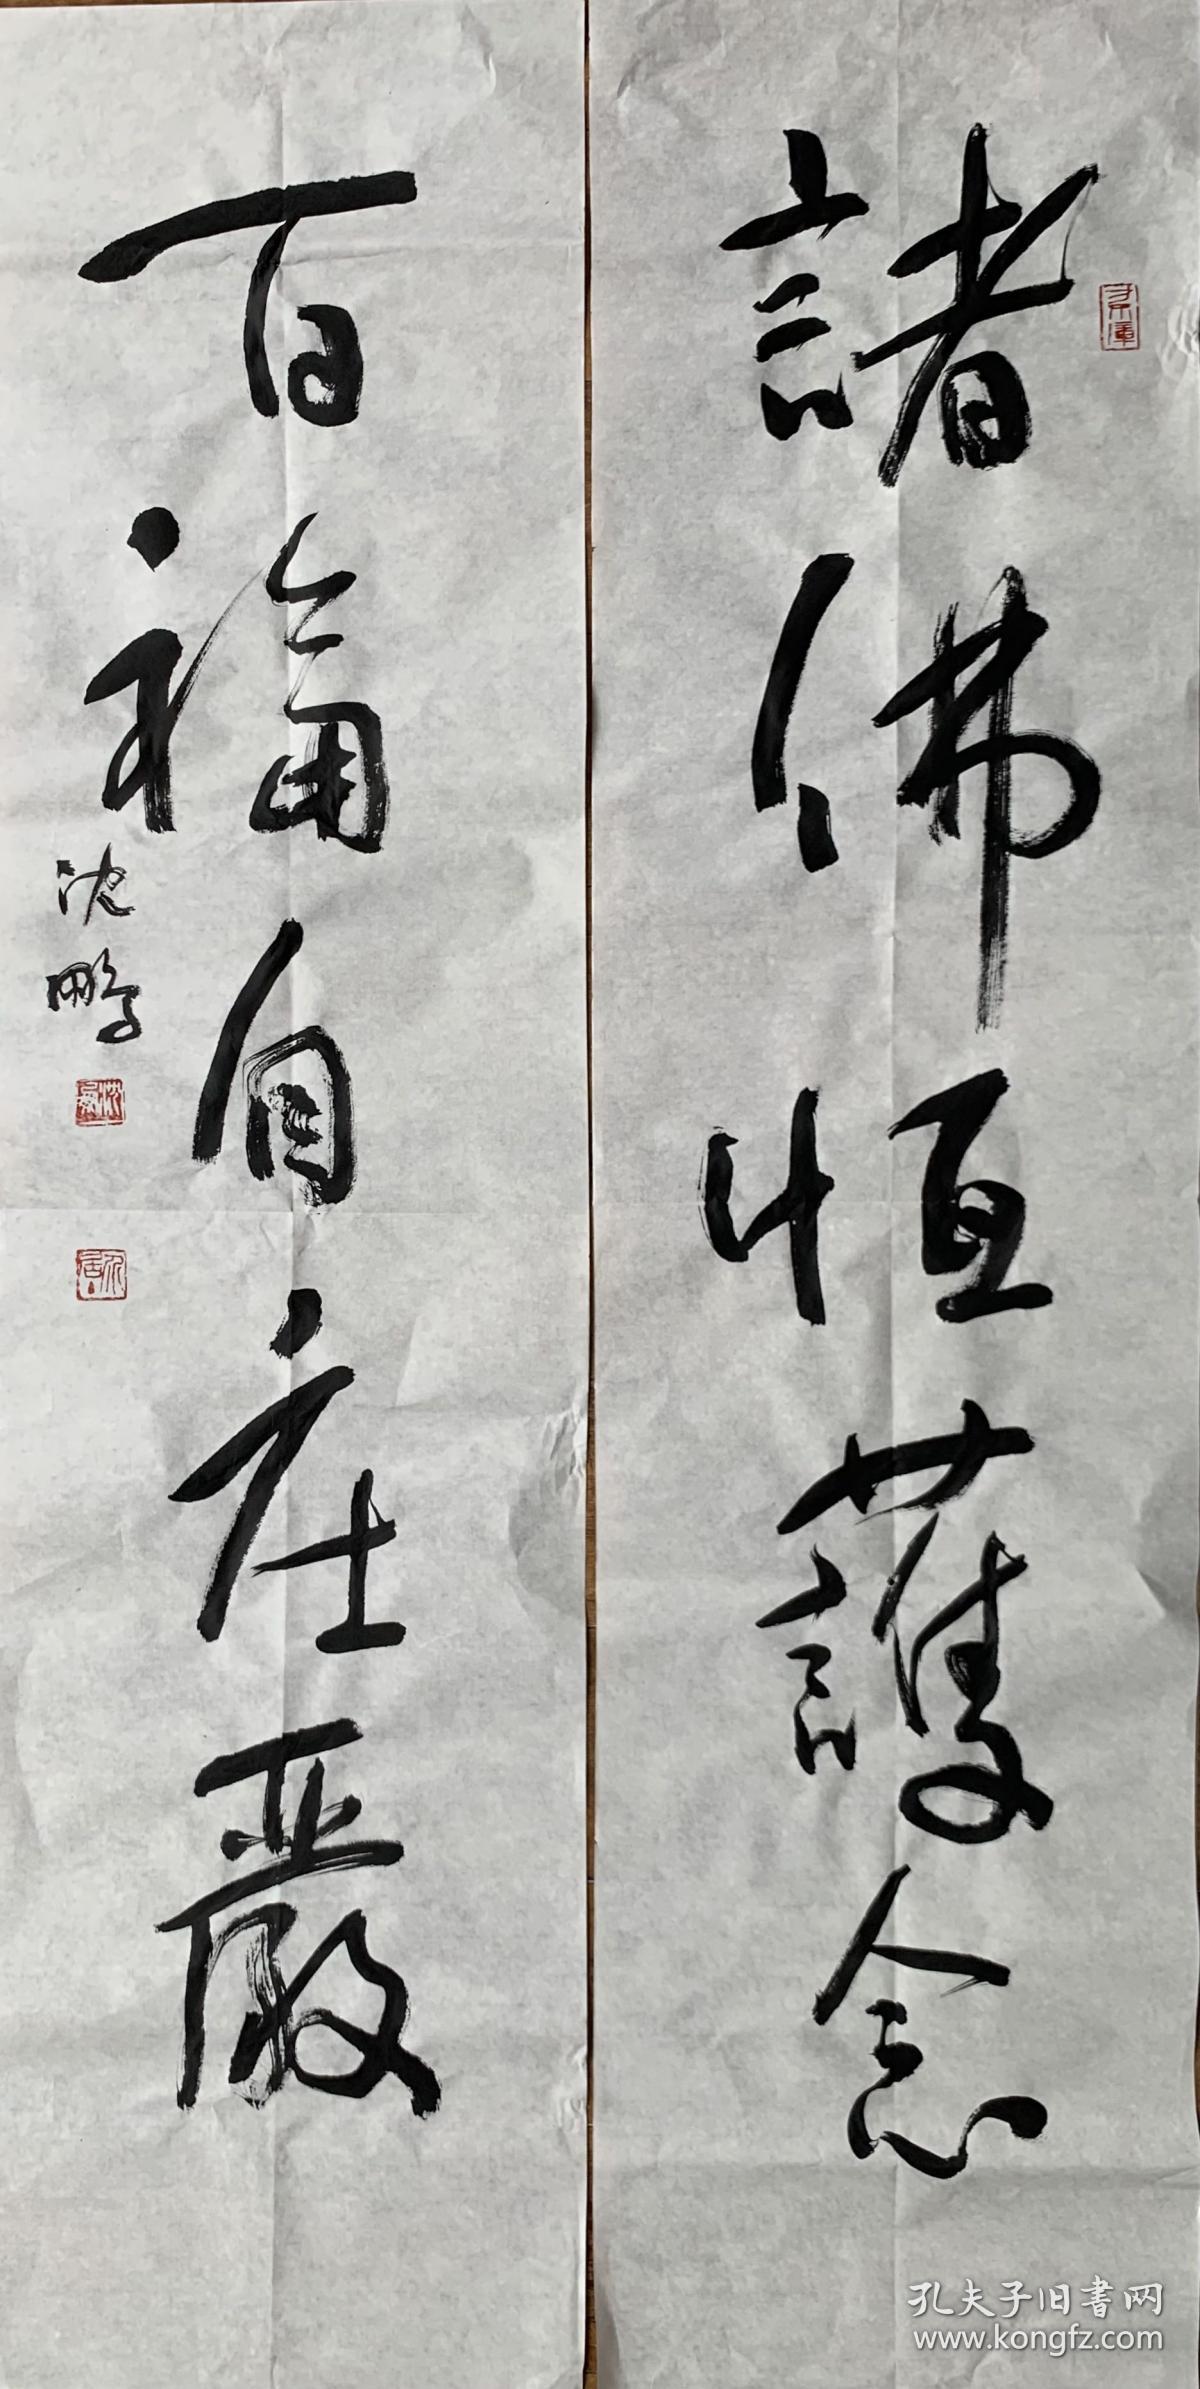 諸佛恒護念
百福自庄嚴
沈鵬
孔夫子旧书网
www.kongfz.com